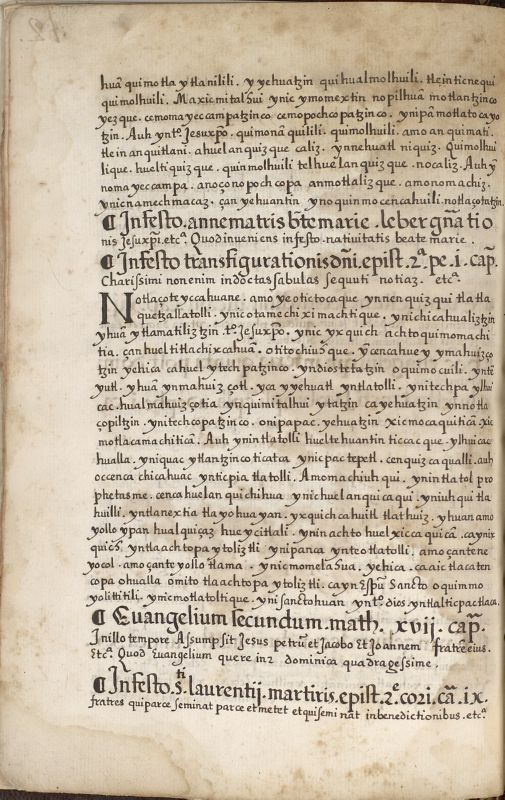 huā quimotla ytlanilili. yyehuatzin quihualmolhuili. tleinticnequi
quimolhuili. Maxicmitalhui ynic ymomextin nopilhuā motlantzinco
yezque. cemomayeccampatzinco. cemopochcopatzinco. ynipā motlatocayo
tzin. Auh ynto. Jesuxpo. quimonāquilili. quimolhuili. amo anquimati.
tlein anquitlani. ahuelanquizque caliz. ynnehuatl niquiz. Quimolhui
lique. hueltiquizque. quinmolhuili telhuelanquizque. nocaliz. Auh y
nomayeccampa. anoço nopochcopa anmotlalizque. camonomachiz.
ynicnamechmacaz, çan yehuantin ynoquinmocencahuili. notlaçotatzin.
¶ Infesto. anne matris bte marie. leber gn̄atio
nis Jesuxpi. etca. Quod inueniens infesto. natiuitatis beate marie.
¶ Infesto trāsfigurationis dn̄i. epist. 2a. pe. i. cap.
Charissimi non enim indoctas fabulas sequuti notiaz. etca.
Notlaçoteyccahuane. amo yeotictocaque ynnenquizqui tlatla
quetzallatolli. ynicotamechiximachtique. ynichicahualiztzin
yhuā ytlamatiliztzin to. Jesuxpo. ynic yxquich achto quimomachi
tia. çanhueltitlachixcahuā. otitochiuhque. yccencahuey ymahuizço
tzin yehica cahuel ytechpatzinco. yndiostetatzin oquimocuili. ynte
yutl. yhuā ynmahuizçotl. yca yyehuatl yntlatolli. ynitechpa ylhui
cac. hualmahuizçotia ynquimitalhui ytatzin cayehuatzin ynnotla
çopiltzin. ynitechcopatzinco. onipapac. yehuatzin xicmocaquiticā xic
motlacamachiticā. Auh ynintlatolli hueltehuantin ticcacque. ylhuicac
hualla. yniquac ytlantzinco ticatca ynicpac tepetl. cenquizca qualli. auh
occenca chicahuac ynticpia tlatolli. Amo machiuhqui. ynintlatol pro
phetasme. cenca huelanquichihua ynic huelanquicaqui. yniuhqui tla
huilli. yntlanextia tlayohuayan. yxquichcahuitl tlathuiz. yhuan amo
yollo ypan hualquiçaz huey citlali. yninachto huelxiccaquicā. caynix
quich. yntlaachtopaytoliztli. ynipanca ynteotlatolli. amo çantene
yocol. amo çanteyollotlama. ynicmomelahua. yehica. caaic tlacaten
copa ohualla omito tlaachtopaytoliztli. cayn Espu Sancto oquimmo
yolititili. ynicmotlatoltique. ynisanctohuan ynto. dios yntlalticpactlaca.
¶ Euangelium secundum. math. xvij. cap.
In illo tempore Assumpsit Jesus petrū et Jacobo et Joannem fratre eius.
Etca. Quod Euangelium quere in 2 dominica quadragessime.
¶ Infesto. sti. laurentij. martiris. epist. 2e. cori. cā. ix.
fratres qui parce seminat parce et metet et qui seminat in benedictionibus. etca.